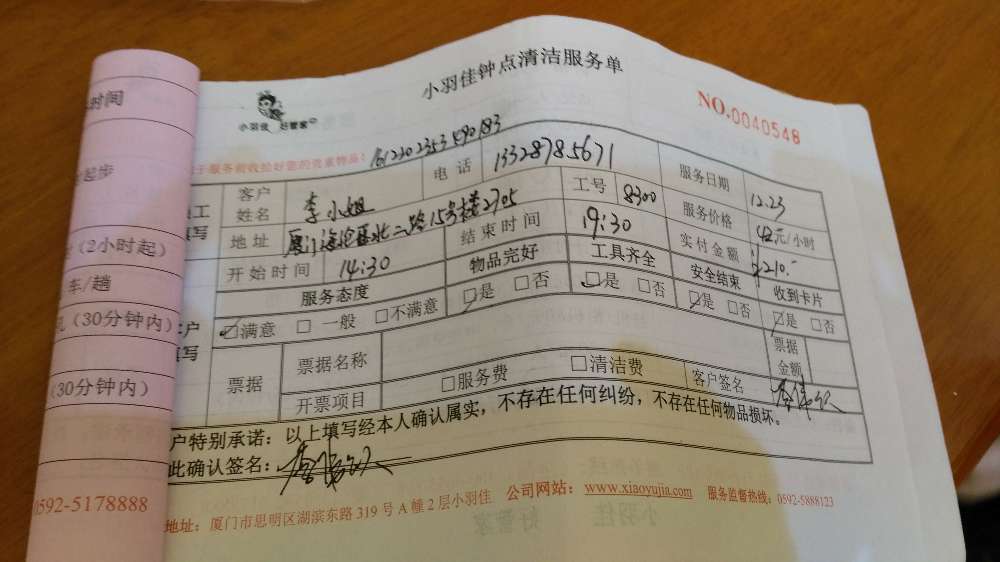 小羽佳钟点清洁服务单
NO.0040548
小羽佳 好管家
于服务前收捡好您的贵重物品:
客户姓名 李小姐 电话 13328785671 服务日期 12.23
地址 厦门海沧区北二路15号楼2705 工号 8300 服务价格 42元/小时
开始时间 14:30 结束时间 19:30 实付金额 210.-
服务态度 物品完好 工具齐全 安全结束 收到卡片
满意 一般 不满意 是 否 是 否 是 否 是 否
票据 票据名称 票据金额
开票项目 服务费 清洁费 客户签名
户特别承诺:以上填写经本人确认属实,不存在任何纠纷,不存在任何物品损坏。
此确认签名:
地址:厦门市思明区湖滨东路319号A幢2层小羽佳 公司网站:www.xiaoyujia.com 服务监督热线:0592-5888123
时间
起步
(2小时起)
车/趟
(30分钟内)
(30分钟内)
0592-5178888